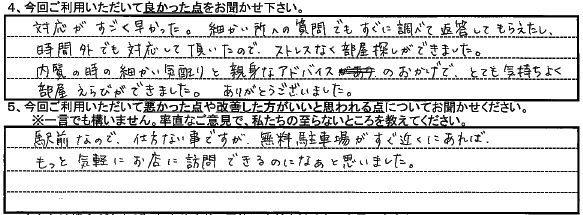 4、今回ご利用いただいて良かった点をお聞かせ下さい。
対応がすごく早かった。細かい所への質問でもすぐに調べて返答してもらえたし、
時間外でも対応して頂いたので、ストレスなく部屋探しができました。
内覧の時の細かい気配りと親身なアドバイスのおかげで、とても気持ちよく
部屋えらびができました。ありがとうございました。
5、今回ご利用いただいて悪かった点や改善した方がいいと思われる点についてお聞かせください。
※一言でも構いません。率直なご意見で、私たちの至らないところを教えてください。
駅前なので、仕方ない事ですが、無料駐車場がすぐ近くにあれば、
もっと気軽にお店に訪問できるのになぁと思いました。